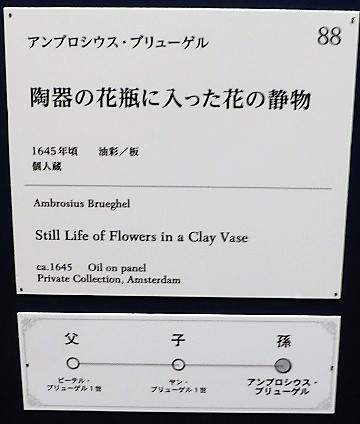 88
アンブロシウス・ブリューゲル
陶器の花瓶に入った花の静物
1645年頃　油彩／板
個人蔵
Ambrosius Brueghel
Still Life of Flowers in a Clay Vase
ca.1645 Oil on panel
Private Collection, Amsterdam
父 子 孫
ピーテル・ ヤン・ アンブロシウス・
ブリューゲル1世 ブリューゲル1世 ブリューゲル